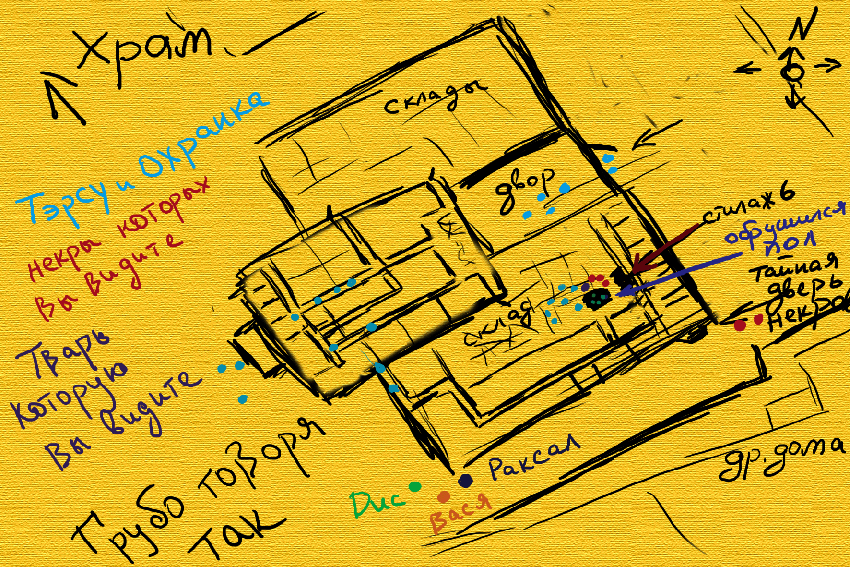 Храм
N
склады
Тэрсу и охранка
двор
некры которых
вы видите
стилаж 6
обрушился
пол
тайная
дверь
некров
склад
Тварь
которую
вы видите
Грубо говоря
так
Раксал
Дис
Вася
др. дома